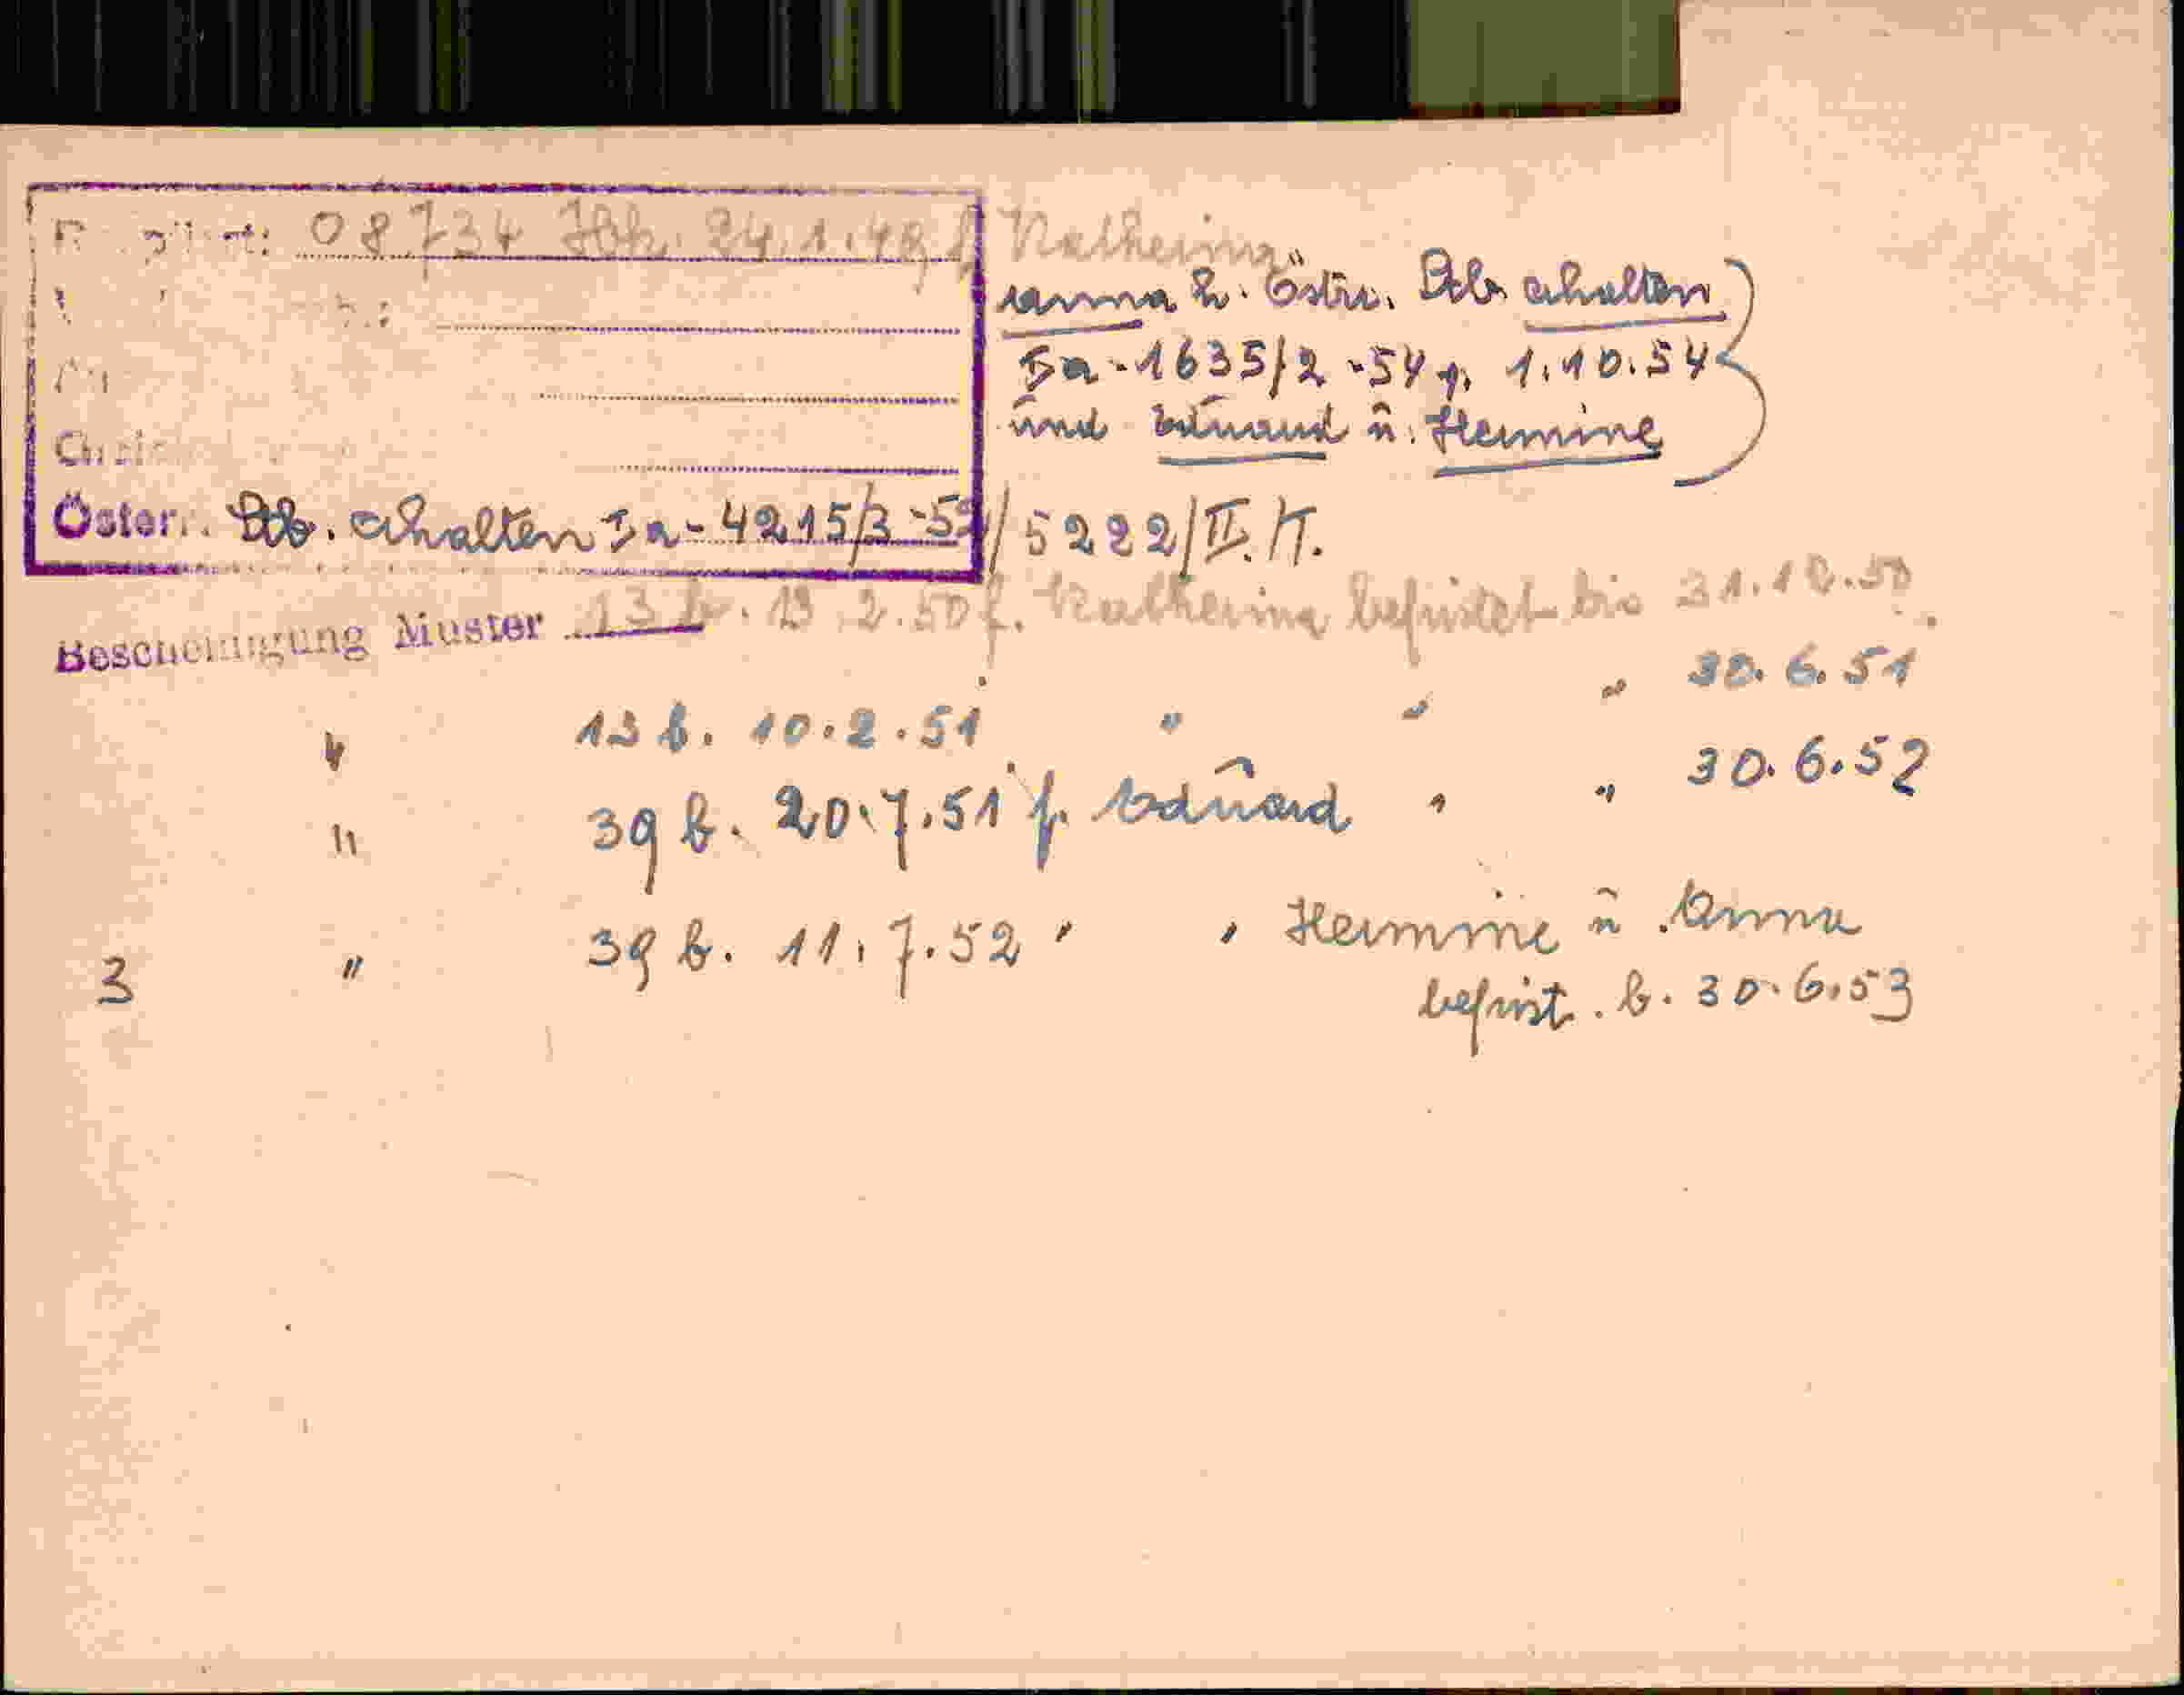 08734 Ibk. 24.1.49 f. Katherina
Anna h. Östr. Stb. erhalten
Ia-1635/2-54 v. 1.10.54
und Eduard u. Hermine
Österr. Stb. erhalten Ia-4215/3-52/5222/II./T.
Bescheinigung Muster 13 b. 13.2.50 f. Katherina befristet bis 31.12.50
" 13 b. 10.2.51 " " " 30.6.51
" 39 b. 20.7.51 f. Eduard " " 30.6.52
3 " 39 b. 11.7.52 " " Hermine u. Anna
befrist. b. 30.6.53